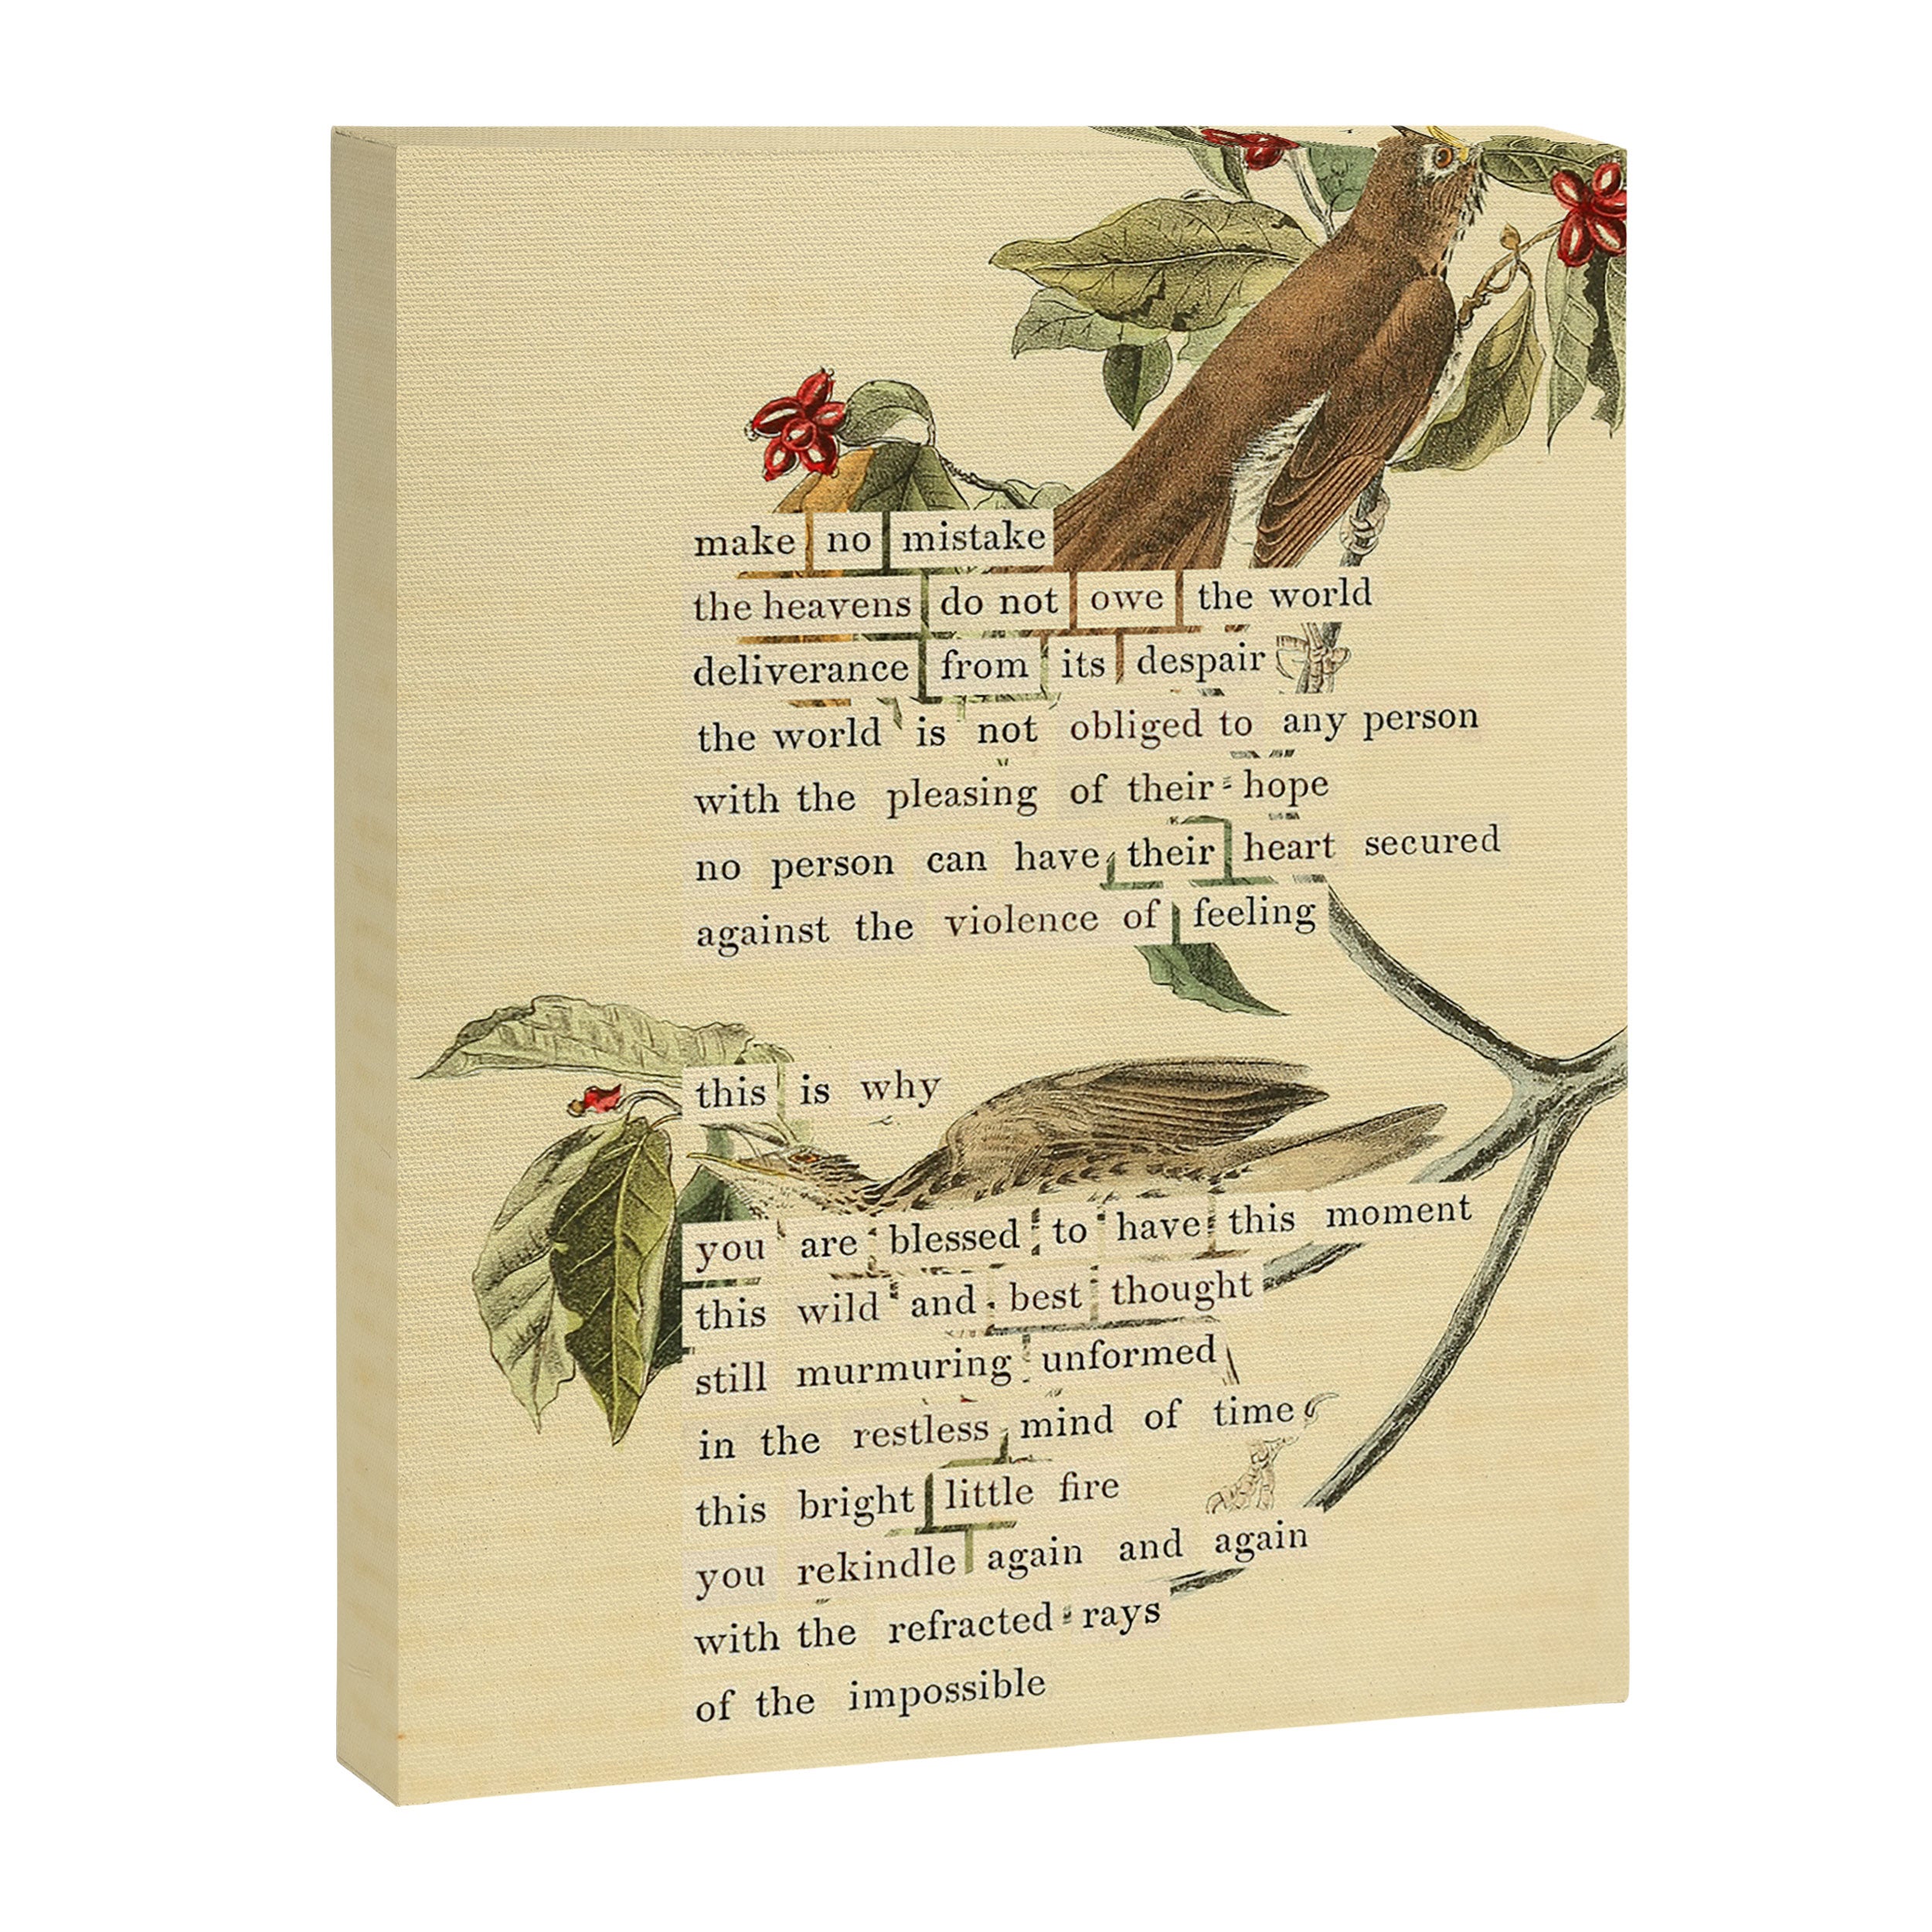 make no mistake
the heavens do not owe the world
deliverance from its despair
the world is not obliged to any person
with the pleasing of their hope
no person can have their heart secured
against the violence of feeling
this is why
you are blessed to have this moment
this wild and best thought
still murmuring unformed
in the restless mind of time
this bright little fire
you rekindle again and again
with the refracted rays
of the impossible